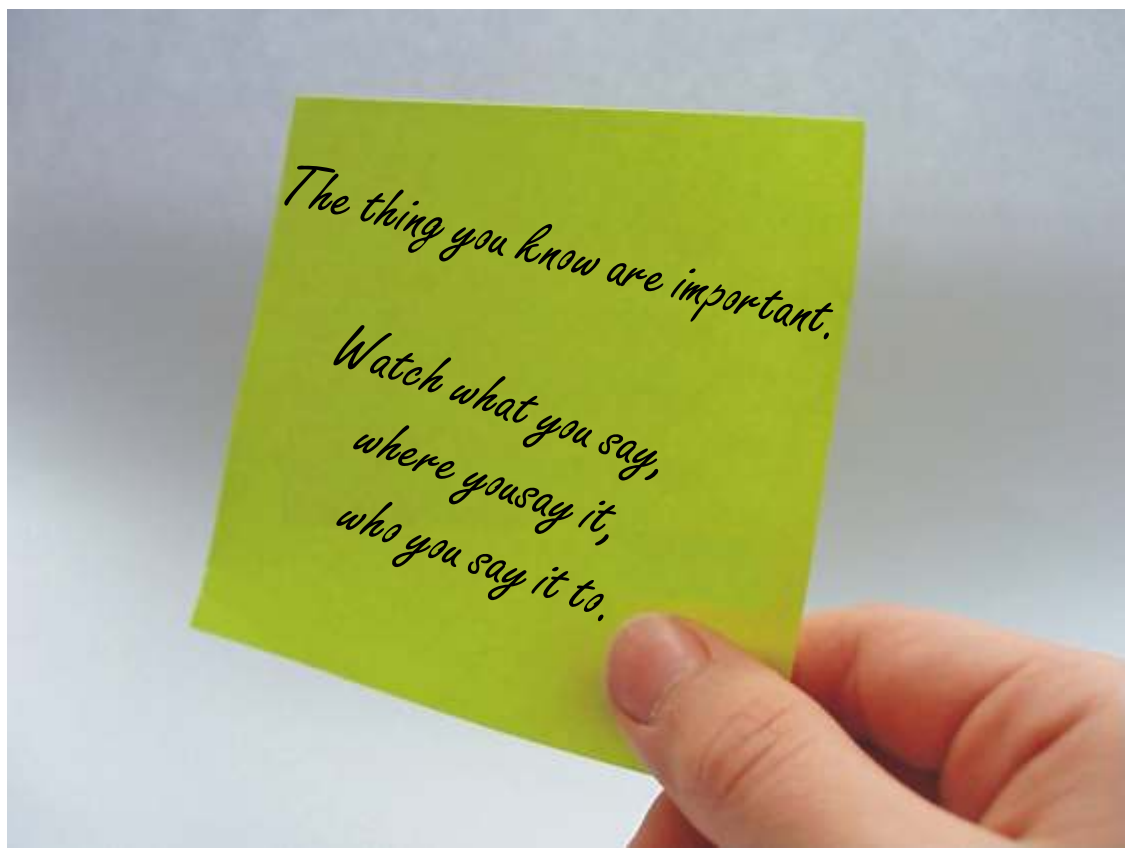 The thing you know are important.
Watch what you say,
where yousay it,
who you say it to.